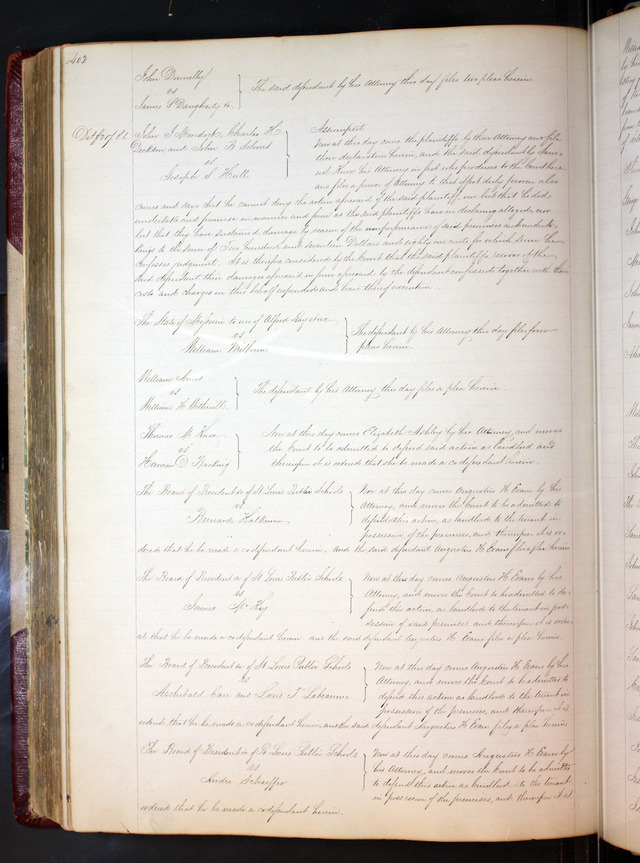 402
John Donnelly
vs
James S Daugherty &c.
The said defendant by his Attorney this day files two pleas herein
John J Murdoch, Charles K
Dickson and John
vs
Joseph S Hull
Assumpsit
Now at this day come the plaintiffs by their Attorney and file
their declaration herein, and the said defendant by
his Attorney in fact who produces to the
and files a power of Attorney to that effect duly proven also
comes and says that he cannot deny the action aforesaid of the said plaintiffs, nor but that he did
undertake and promise in manner and form as the said plaintiffs have in declaring alleged, nor
but that they have sustained damage by reason of the non performance of said promises
to the sum of Five hundred and seventeen Dollars and eighty one cents for which sum he
confesses judgment. It is therefore considered by the Court that the said plaintiffs recover of the
said defendant their damages aforesaid in form aforesaid by the defendant confessed together with their
costs and charges in this behalf expended and have thereof execution.
The State of Missouri to use of Alfred
vs
William Milburn
The defendant by his Attorney this day files four
pleas herein.
William Ames
vs
William H
The defendant by his Attorney this day files a plea herein.
Thomas M
vs
Herman D
Now at this day comes Elizabeth Ashley by her Attorney, and moves
the Court to be admitted to defend said action as landlord and
thereupon it is ordered that she be made a codefendant herein.
The Board of President &c of St Louis Public Schools
vs
Bernard
Now at this day comes Augustus H Evans by his
Attorney, and moves the Court to be admitted to
defend this action, as landlord to the tenant in
possession of the premises, and thereupon it is or-
dered that he be made a codefendant herein. And the said defendant Augustus H Evans files a plea herein
The Board of President &c of St Louis Public Schools
vs
James McKay
Now at this day comes Augustus H Evans by his
Attorney, and moves the Court to be admitted to de-
fend this action, as landlord to the tenant in pos-
session of said premises and thereupon it is order-
ed that he be made a codefendant herein. and the said defendant Augustus H Evans files a plea herein
The Board of President &c of St Louis Public Schools
vs
Archibald Carr and Louis T Labeaume
Now at this day comes Augustus H Evans by his
Attorney, and moves the Court to be admitted to
defend this action as landlord to the tenant in
possession of the premises, and thereupon it is
ordered that he be made a codefendant herein, and the said defendant Augustus H Evans files a plea herein
The Board of President &c of St Louis Public Schools
vs
Andre Schaeffer
Now at this day comes Augustus H Evans by
his Attorney, and moves the Court to be admitted
to defend this action as landlord to the tenant
in possession of the premises, and thereupon it is
ordered that he be made a codefendant herein.